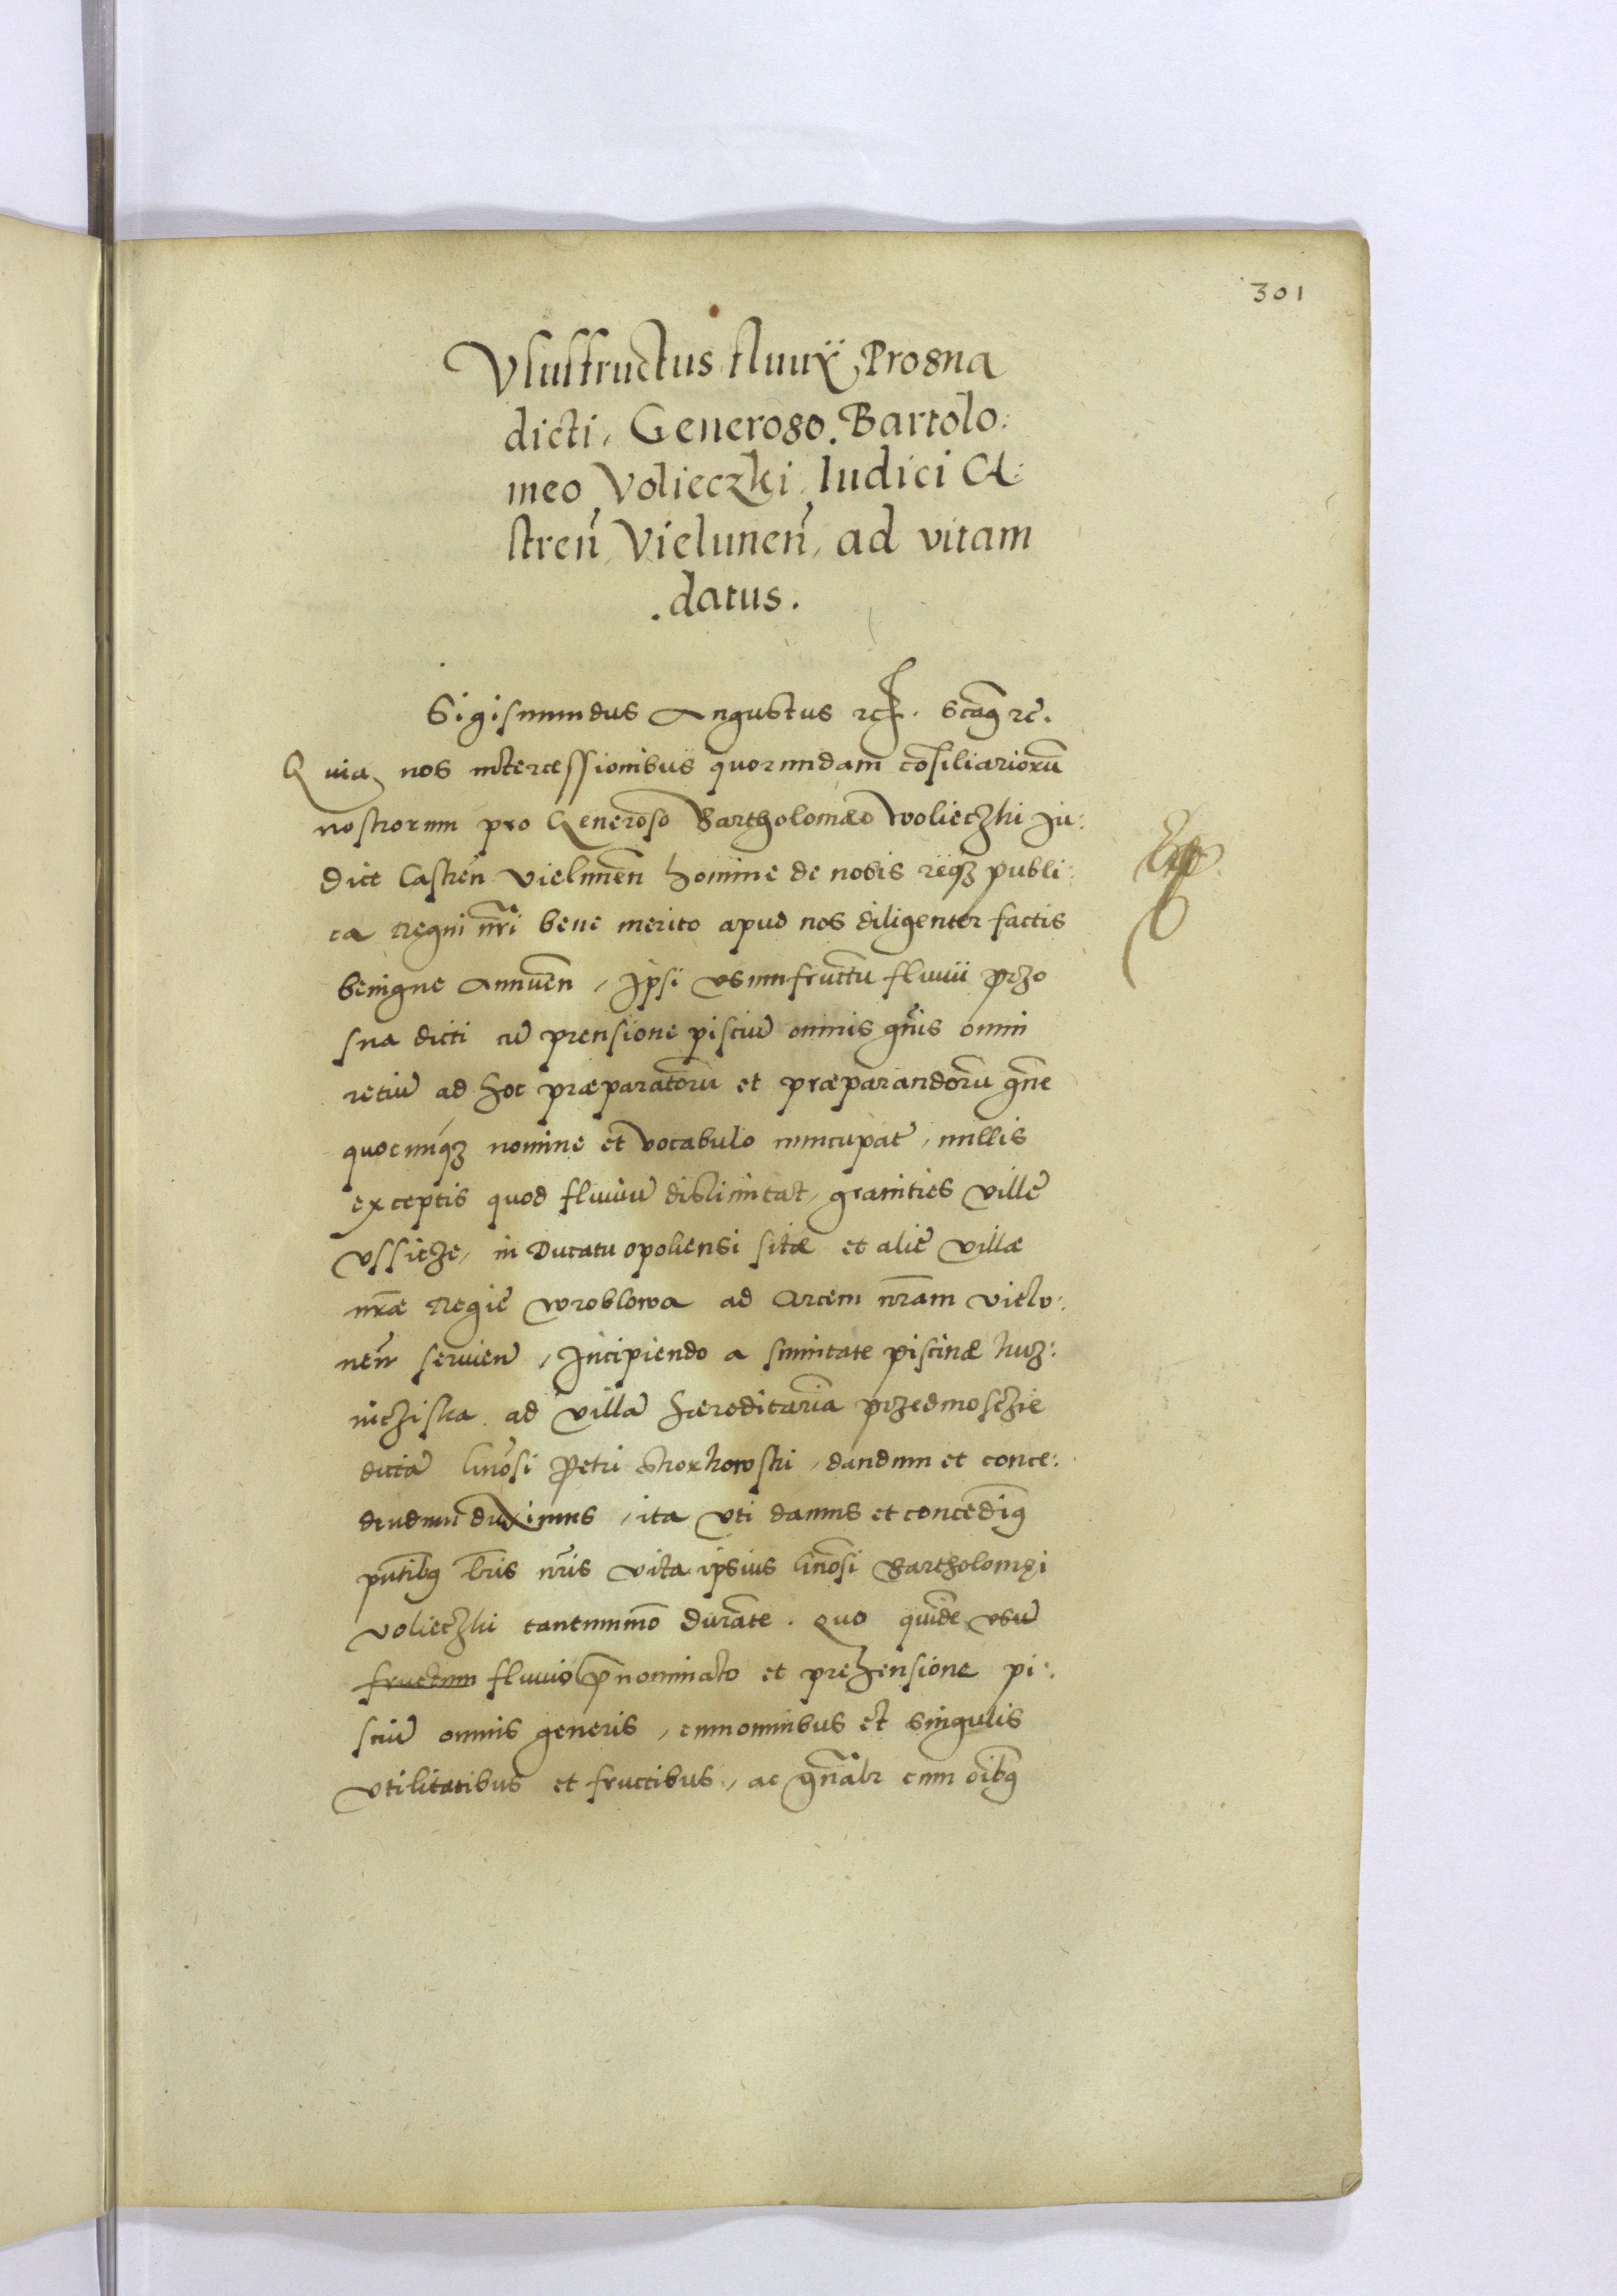 301
Vsusfructus fluuÿ Prosna
dicti, Generoso. Bartolo:
meo Volieczki Iudici Ca:
stren̄ Vielunen̄, ad vitam
.datus.
Sigismundus Augustus rex. Scaq3 rc̄.
Quia nos intercessionibus quorundam cōsiliariorū
nostrorum pro Generoso Bartholomæo Wolieczki Ju:
dice Castren̄ Vielunen̄ homine de nobis reiq3 publi:
ca Regni nr̄i bene merito apud nos diligenter factis
benigne annuen̄, Ipsi vsumfructū fluuii Przo
sna dicti cū prensione pisciū omnis gn̄is omn̄
retiū ad hoc præparatorū et præparandorū gn̄e
quocunq3 nomine et vocabulo nuncupat̄, nullis
exceptis quod fluuiū dislimitat, granities villē
Vssicze, in Ducatu opoliensi sitæ et aliē villæ
nr̄æ Regiē Wroblowa ad Arcem nr̄am Vielu:
nen̄ seruien̄, Incipiendo a sumitate piscinæ kuz:
nicziska ad villā hæreditariā Przedmosczie
dictā Gn̄osi Petri Skorkowski, dandum et conce:
dendum duximus, ita vti damus et concedimq3
pn̄tibq3 lr̄is nr̄is vita ipsius Gn̄osi Bartholomęi
Volieczki tantummō durāte. Quo quidē vsū
fructum fluuio p̄nominato et prehensione pi:
sciū omnis generis, cum omnibus et singulis
vtilitatibus et fructibus, ac gn̄alr cum oībq3